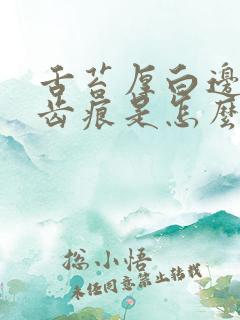 舌苔厚白邊
齿痕是怎麽
悠小悟
未经同意禁止转载